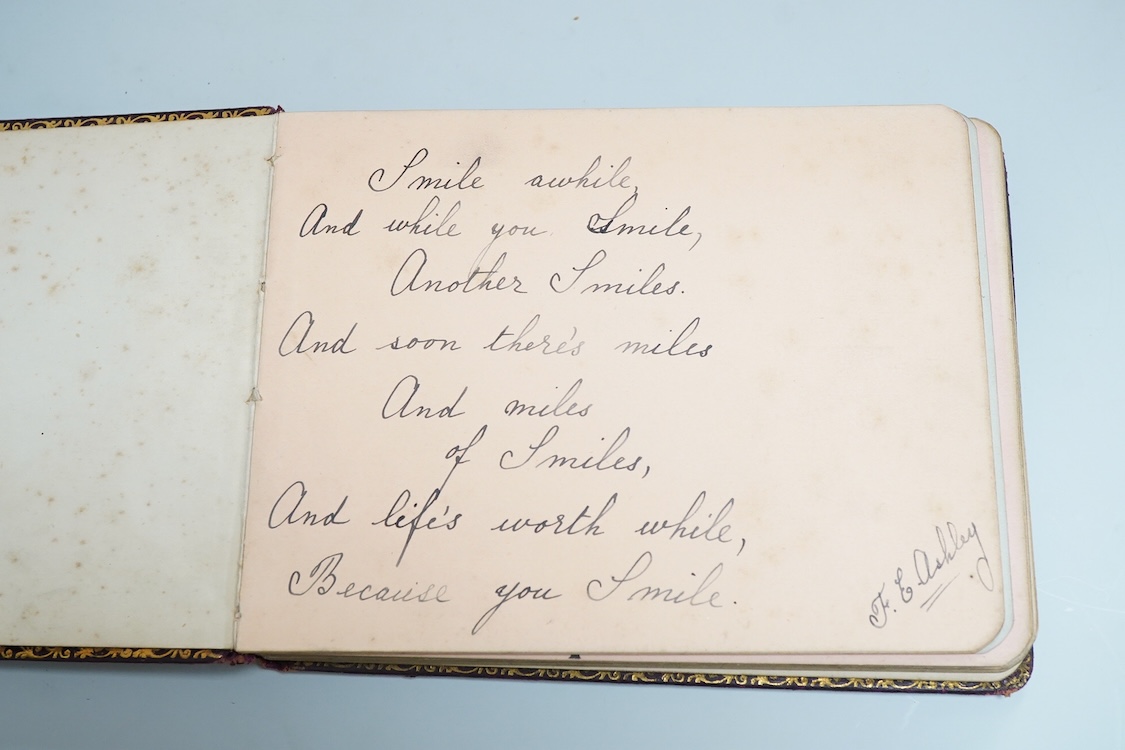 Smile awhile,
And while you Smile,
Another Smiles.
And soon there's miles
And miles
of Smiles,
And life's worth while,
Because you Smile.
F. E. Ashley.